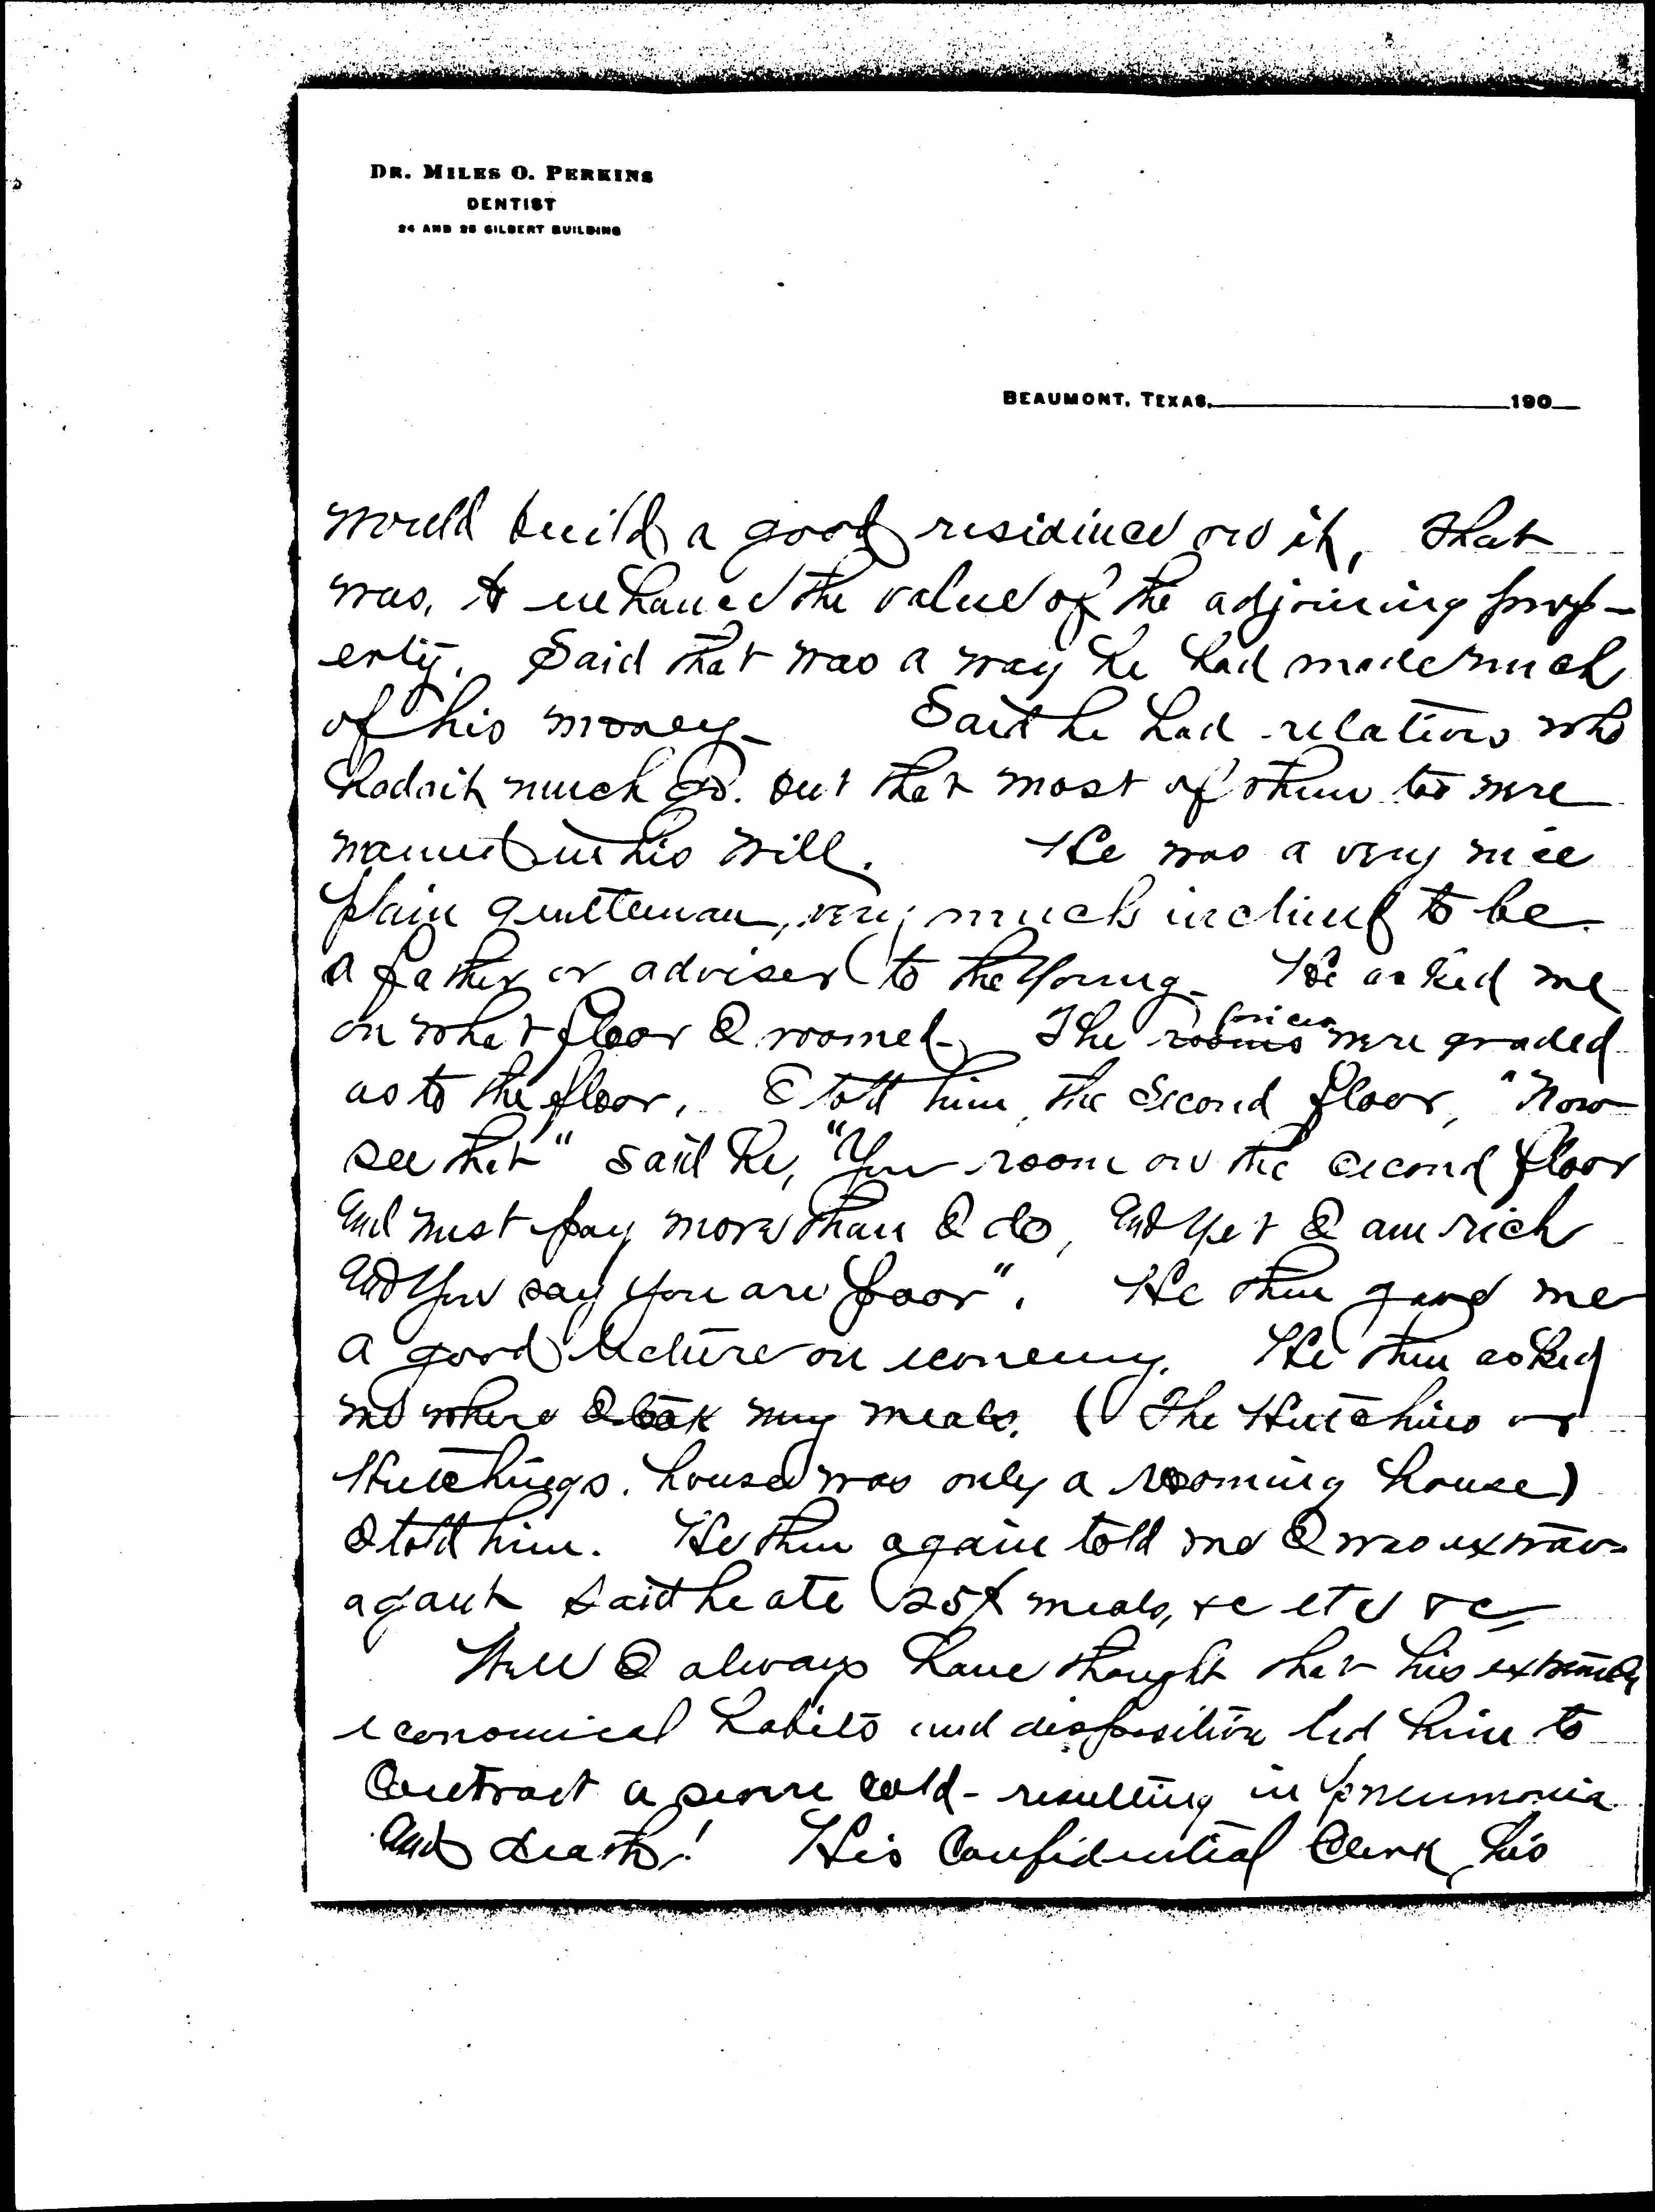 DR. MILES O. PERKINS
DENTIST
24 AND 25 GILBERT BUILDING
BEAUMONT, TEXAS, 190
would build a good residence on it, That
was, to enhance the value of the adjoining prop-
erty. Said that was a way he had made much
of his money- Said he had relations who
hadn't much but that most of them were
named in his will. He was a very nice
plain gentleman, very much inclined to be
a father or adviser to the young- He asked me
on what floor I roomed- The rooms prices were graded
as to the floor. I told him, the second floor, "Now
see that" said he, "You room on the second floor
and must pay more than I do, and yet I am rich
and you say you are poor". He then gave me
a good lecture on economy. He then asked
me where I took my meals. (The Hutchins or
Hutchings. house was only a rooming house)
I told him. He then again told me I was extrav-
agant said he ate 25¢ meals, &c etc &c
Well I always have thought that his extremely
economical habits and disposition led him to
Contract a severe cold- resulting in pneumonia
and death! His Confidential Clerk, his